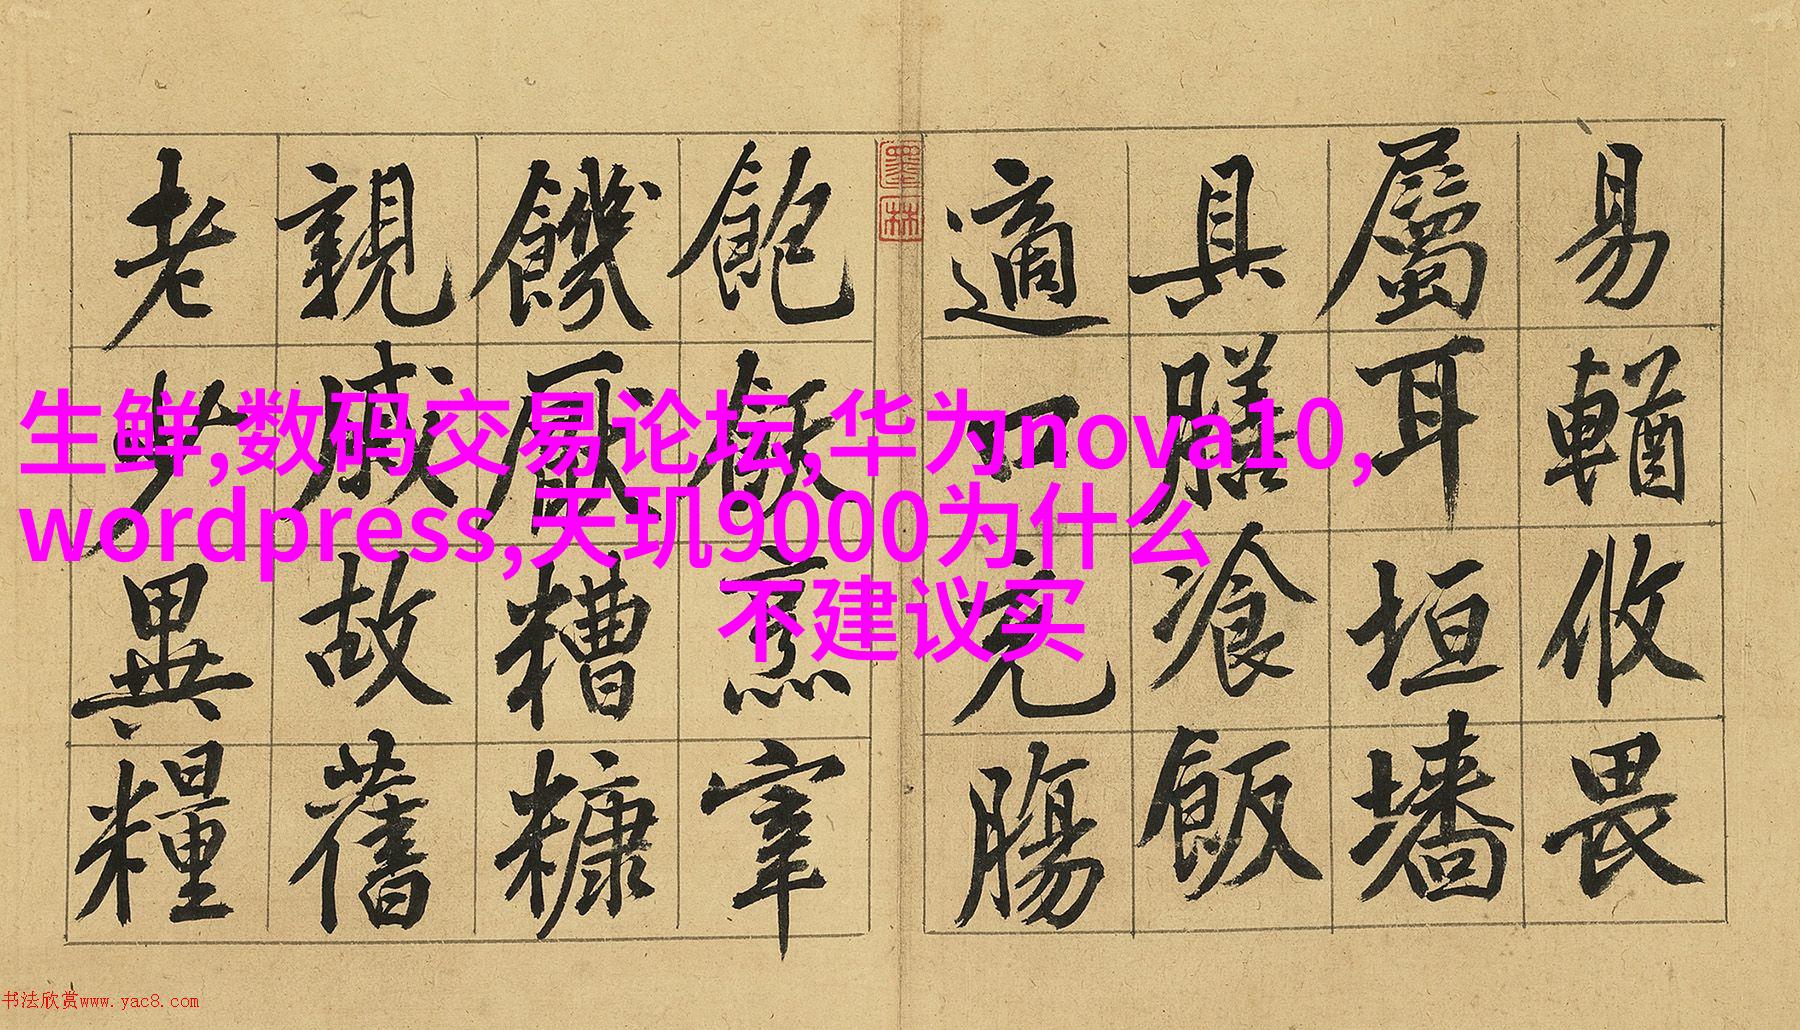 生鲜,数码交易论坛,华为nova10,
wordpress,天玑9000为什么
不建议买
易輶攸畏
屬耳垣墻
具膳飡飯
適口充腸
飽飫烹宰
饑厭糟糠
親戚故舊
老少異糧
墨林
书法欣赏www.yac8.com